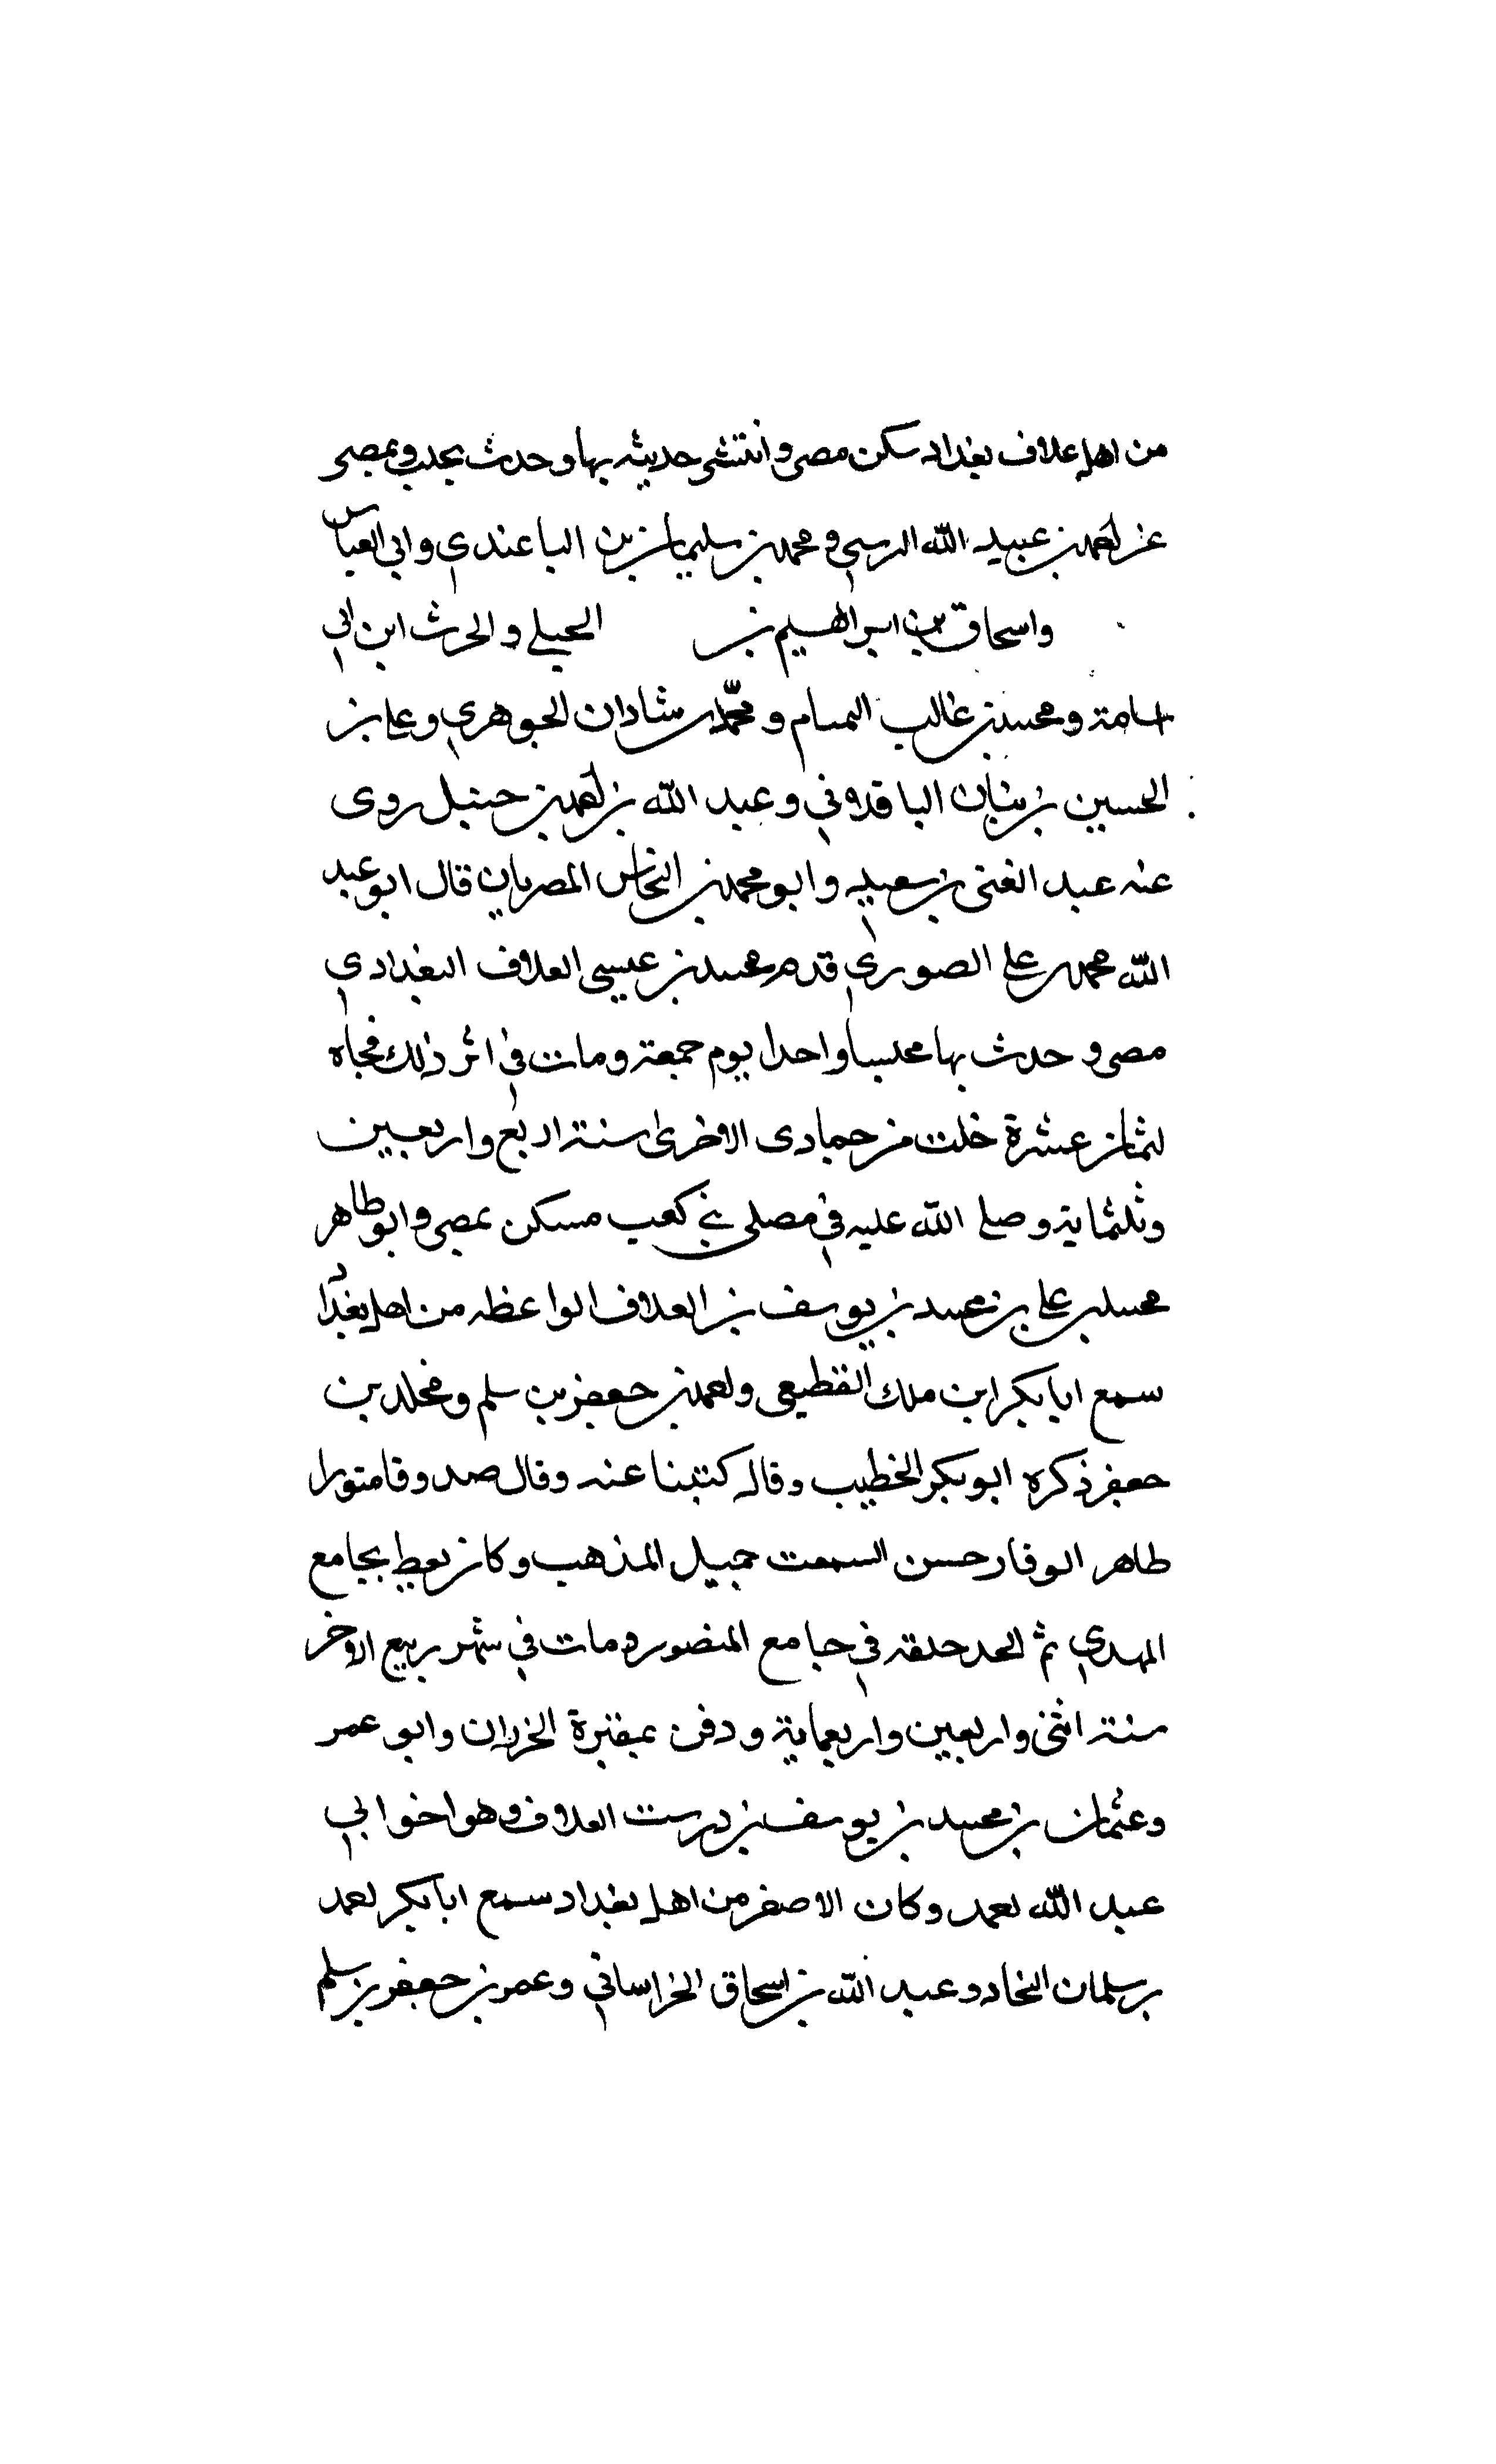 من اهل علاف بغداد سكن مصر وانتشر حديثه بها وحدث بحلب وبمصر
عن احمد بن عبيد الله النرسي و محمد بن سليمان بن الباغندي وابي العباس
واسحاق بن ابراهيم بن الجيلي والحرث ابن ابي
اسامة ومحمد بن غالب التمتام و محمد بن شاذان الجوهري وعلي بن
الحسين بن بنان الباقلاني وعبد الله بن احمد بن حنبل روى
عنه عبد الغني بن سعيد وابو محمد بن النحاس المصريان قال ابو عبد
الله محمد بن علي الصوري قدم محمد بن عيسى العلاف البغدادي
مصر و حدث بها مجلسا واحدا يوم جمعة ومات في اثر ذلك فجاه
لثمان عشرة خلت من جمادى الاخرى سنة اربع واربعين
وثلثماية وصلي الله عليه في مصلى بني كعب مسكن بمصر وابو طاهر
محمد بن علي بن محمد بن يوسف بن العلاف الواعظ من اهل بغداد
سمع ابا بكر ابن ملك القطيعي واحمد بن جعفر بن سلم ومخلد بن
جعفر ذكره ابو بكر الخطيب وقال كتبنا عنه وقال صدوقا متورا
طاهر الوقار حسن السمت جميل المذهب وكان يعظ بجامع
المهدي ثم اتخذ حلقه في جامع المنصور ومات في شهر ربيع الاخر
سنة اثنى واربعين واربعماية ودفن بمقبرة الخزران وابو عمر
وعثمان بن محمد بن يوسف بن درست العلاف وهو اخو ابي
عبد الله احمد وكان الاصغر من اهل بغداد سمع ابا بكر احمد
بن سلمان النجاد وعبد الله بن اسحاق الخراساني وعمر بن جعفر بن سلم